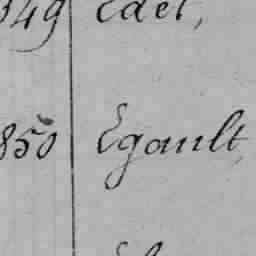 349 Edel,
850 Egault,